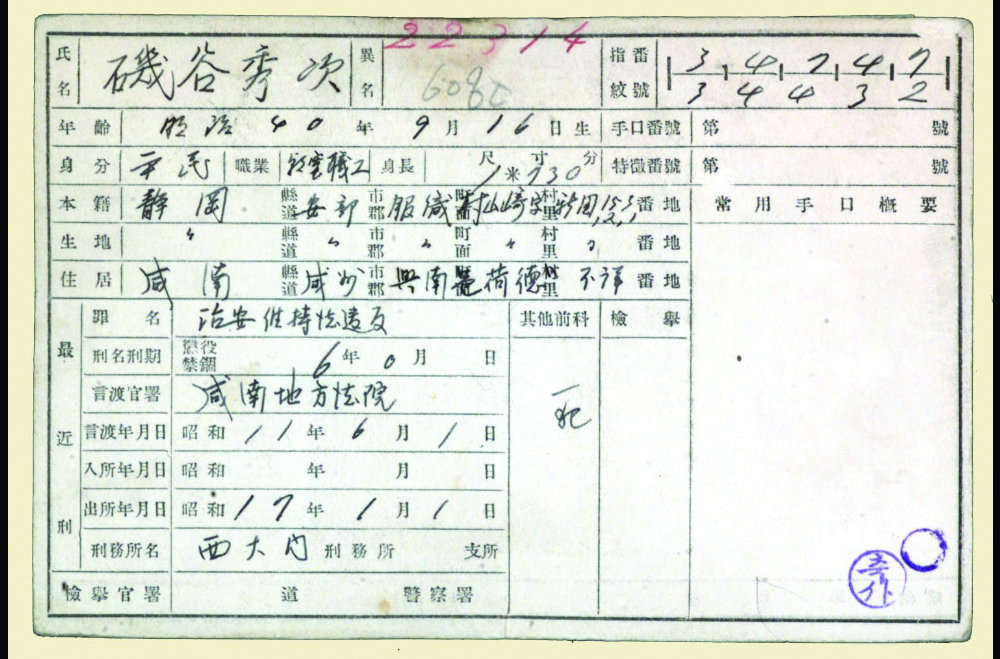 22314
氏名 磯谷秀次 異名 指紋番號 3 4 7 4 7
3 4 4 3 2
年齡 明治40年9月16日生 手口番號 第 號
身分 平民 職業 職工 身長 尺寸分 1米730 特徵番號 第 號
本籍 靜岡 縣道 安部 市郡 服織 町面 村里 番地 常用手口概要
生地 〃 縣道 〃 市郡 〃 町面 〃 村里 〃 番地
住居 咸南 縣道 咸州 市郡 興南 荷德 村里 不詳 番地
最近刑 罪名 治安維持法違反 其他前科 檢擧
刑名刑期 懲役 禁錮 6年0月 日
言渡官署 咸南地方法院
言渡年月日 昭和11年6月1日
入所年月日 昭和 年 月 日
出所年月日 昭和17年1月1日
刑務所名 西大門 刑務所 支所
檢擧官署 道 警察署